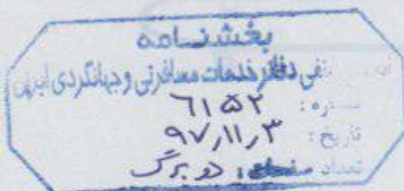 بخشنامه
صنفی دفاتر خدمات مسافرتی و جهانگردی ایران
شماره: ۶۱۵۲
تاریخ: ۹۷/۱۱/۳
تعداد صفحات: دو برگ